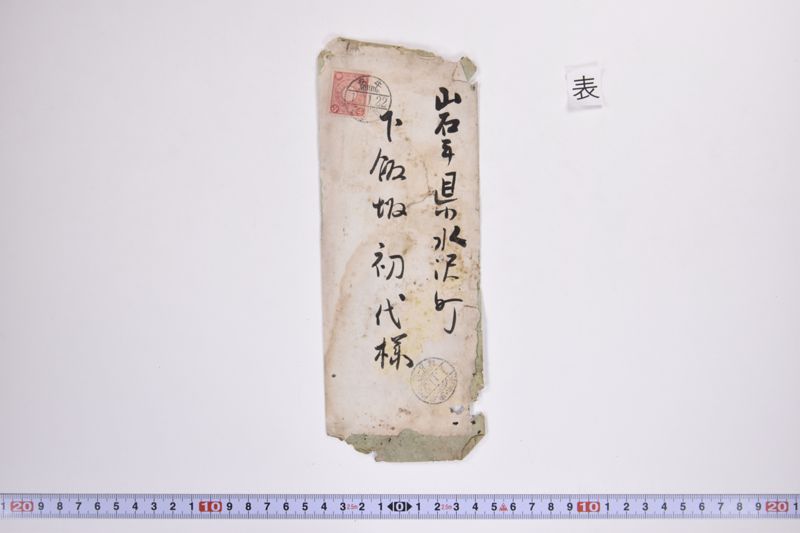 表
岩手県水沢町
下飯坂初代様
22
1 20 9 8 7 6 5 4 3 2 1 10 9 8 7 6 5 4 3 2 1 0 1 2 3 4 5 6 7 8 9 10 1 2 3 4 5 6 7 8 9 20 1